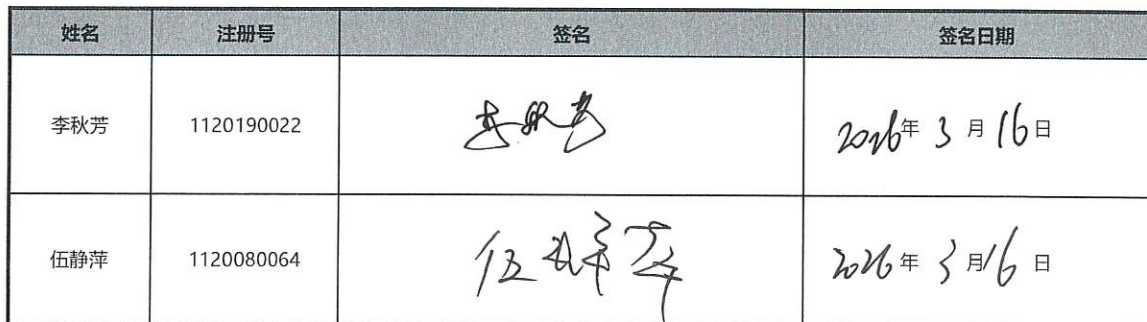 姓名 注册号 签名 签名日期
李秋芳 1120190022 李秋芳 2026年3月16日
伍静萍 1120080064 伍静萍 2026年3月16日